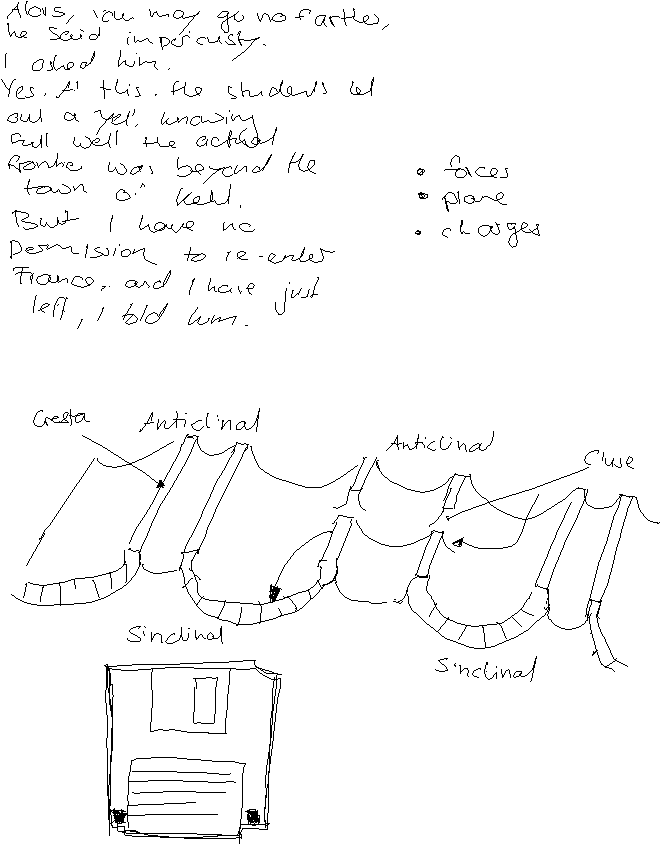 Alors, you may go no farther,
he said imperiously.
I asked him.
Yes. At this. the students let
out a yell, knowing
full well the actual
frontier was beyond the
town of Kehl.
But I have no
permission to re-enter
France, and I have just
left, I told him.
• forces
• plane
• charges
Cresta
Anticlinal
Anticlinal
Cluse
Sinclinal
Sinclinal